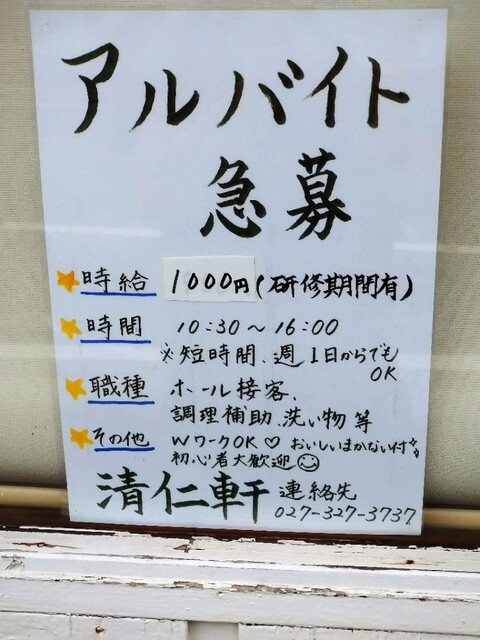 アルバイト
急募
時給 1000円(研修期間有)
時間 10:30～16:00
※短時間、週1日からでも
OK
職種 ホール接客、
調理補助、洗い物 等
その他 WワークOK♡ おいしいまかない付
初心者大歓迎
清仁軒 連絡先
027-327-3737